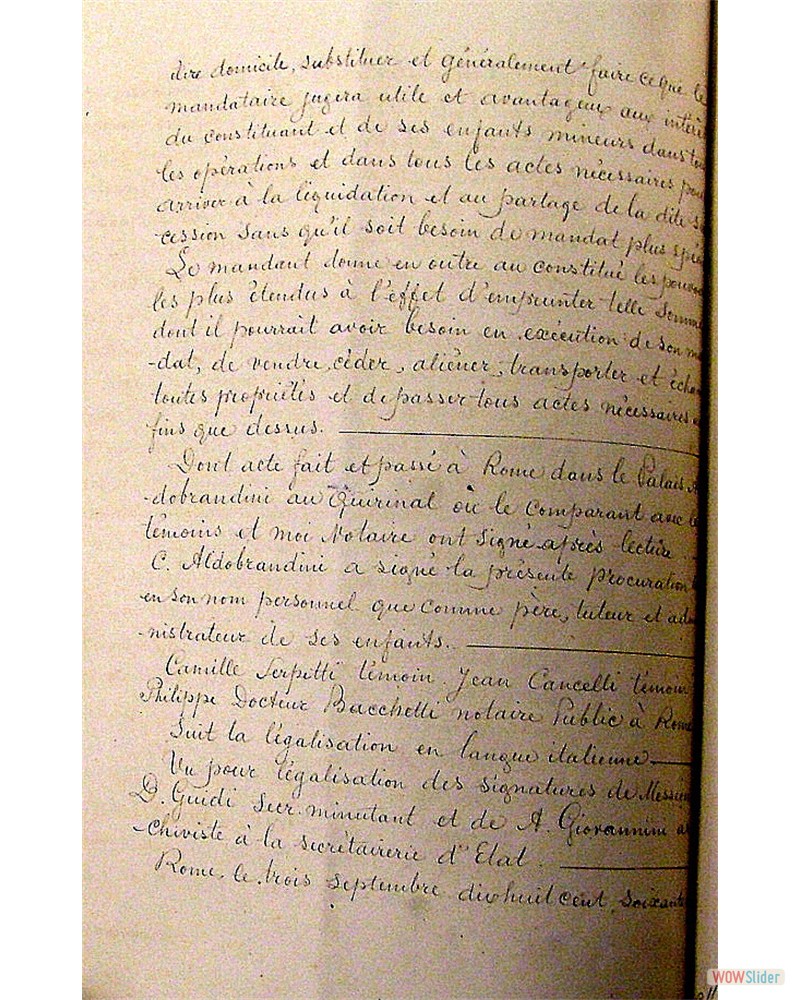 élire domicile, substituer et généralement faire ce que le
mandataire jugera utile et avantageux aux intérê
du constituant et de ses enfants mineurs dans tou
les opérations et dans tous les actes nécessaires pou
arriver à la liquidation et au partage de la dite su
cession sans qu'il soit besoin de mandat plus spéc
Le mandant donne en outre au constitué les pouvoi
les plus étendus à l'effet d'emprunter telle somme
dont il pourrait avoir besoin en exécution de son ma
-dat, de vendre, céder, aliéner, transporter et écha
toutes propriétés et de passer tous actes nécessaires a
fins que dessus.
Dont acte fait et passé à Rome dans le Palais A
-dobrandini au Quirinal où le comparant avec le
témoins et moi Notaire ont signé après lecture
C. Aldobrandini a signé la présente procuration
en son nom personnel que comme père, tuteur et adm
-nistrateur de ses enfants.
Camille Serpetti témoin. Jean Cancelli témoin
Philippe Docteur Bacchetti notaire Public à Rome
Suit la légalisation en langue italienne
Vu pour légalisation des signatures de Messieu
D. Guidi Secr. minutant et de A. Giovannini ar
-chiviste à la secrétairerie d'Etat.
Rome, le trois septembre dix huit cent soixante
WOWSlider